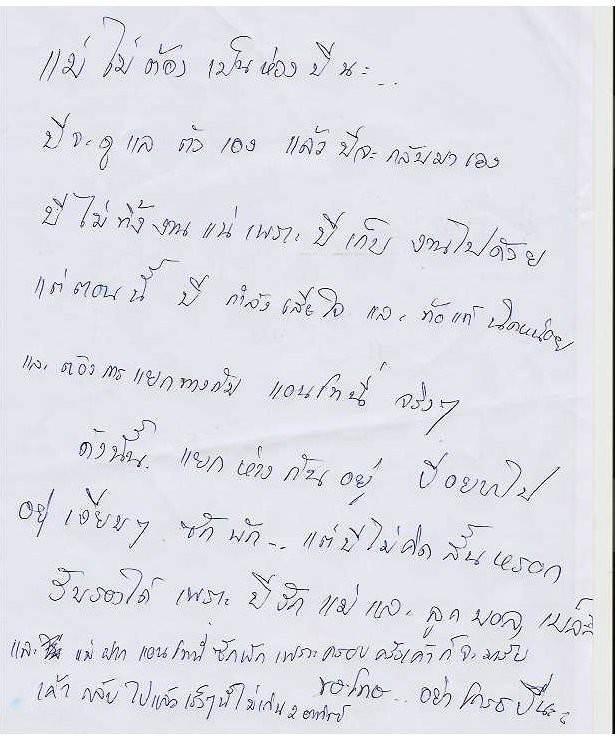 แม่ ไม่ ต้อง เป็นห่วง ปี นะ...
ปี จะ ดู แล ตัว เอง แล้ว ปี จะ กลับมา เอง
ปี ไม่ ทิ้ง งาน แน่ เพราะ ปี เก็บ งานไปด้วย
แต่ ตอน นี้ ปี กำลัง เสียใจ และ ท้อแท้ นิดหน่อย
และ ต้องการ แยกทางกับ แอนโทนี่ จริงๆ
ดังนั้น. แยก ห่าง กัน อยู่ ปี อยากไป
อยู่ เงียบๆ ซัก พัก... แต่ ปี ไม่ คิด สั้น หรอก
รับรองได้ เพราะ ปี รัก แม่ และ ลูก
และ แม่ ฝาก แอนโทนี่ ซักพัก เพราะ ครอบ ครัว เค้า ก็ จะ มารับ
เค้า กลับ ไป แล้ว เร็วๆ นี้ ไม่เกิน 2 อาทิตย์ ขอโทษ... อย่า โกรธ ปี นะ